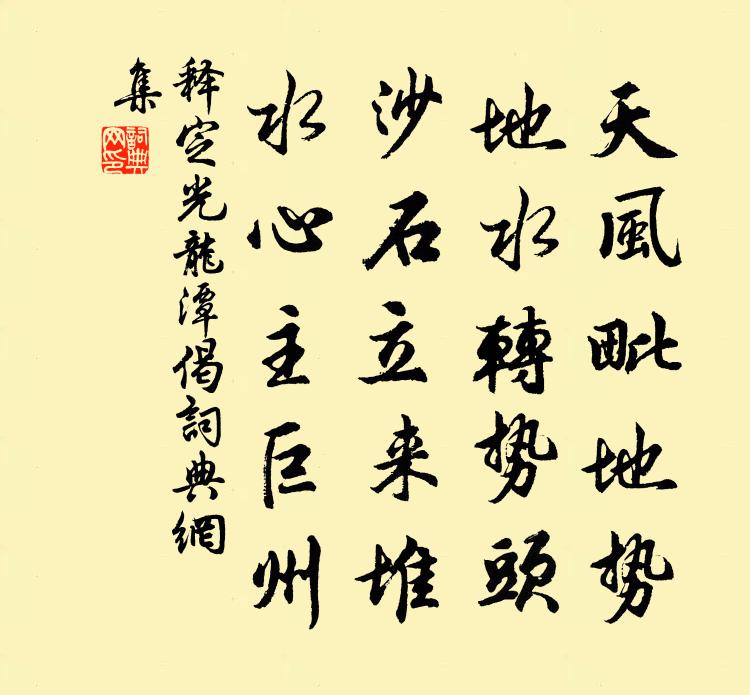 天風毗地势
地水轉势頭
沙石立来堆
水心主巨州
释定光龍潭偈詞典網
集
詞典網印